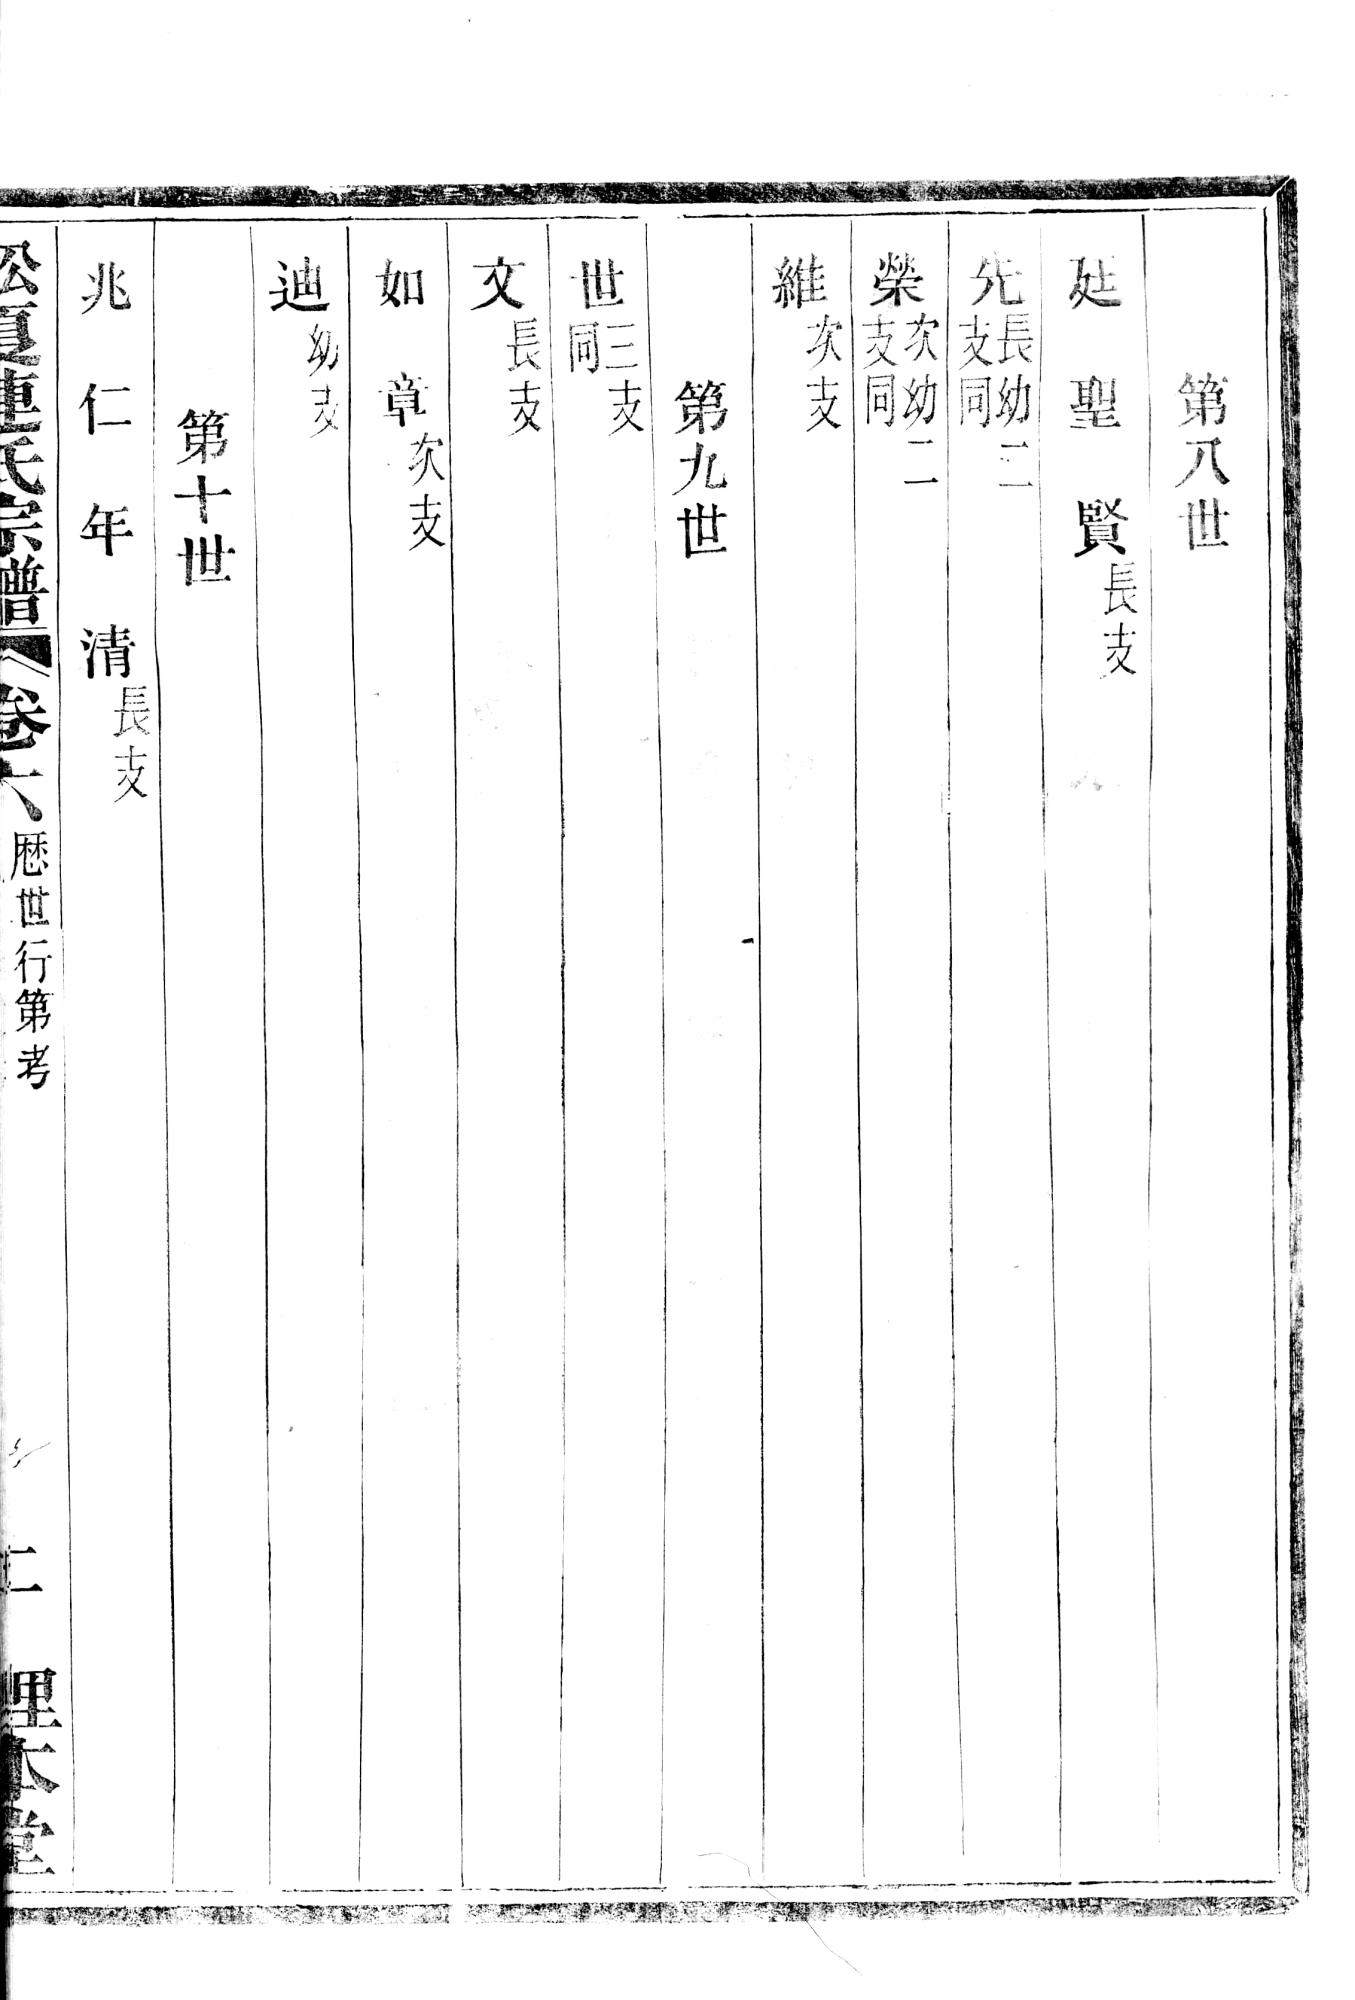 第八世
廷聖賢長支
先長幼二支同
榮次幼二支同
維次支
第九世
世三支同
文長支
如章次支
迪幼支
第十世
兆仁年清長支
松夏連氏宗譜卷六歷世行第考 三 理本堂